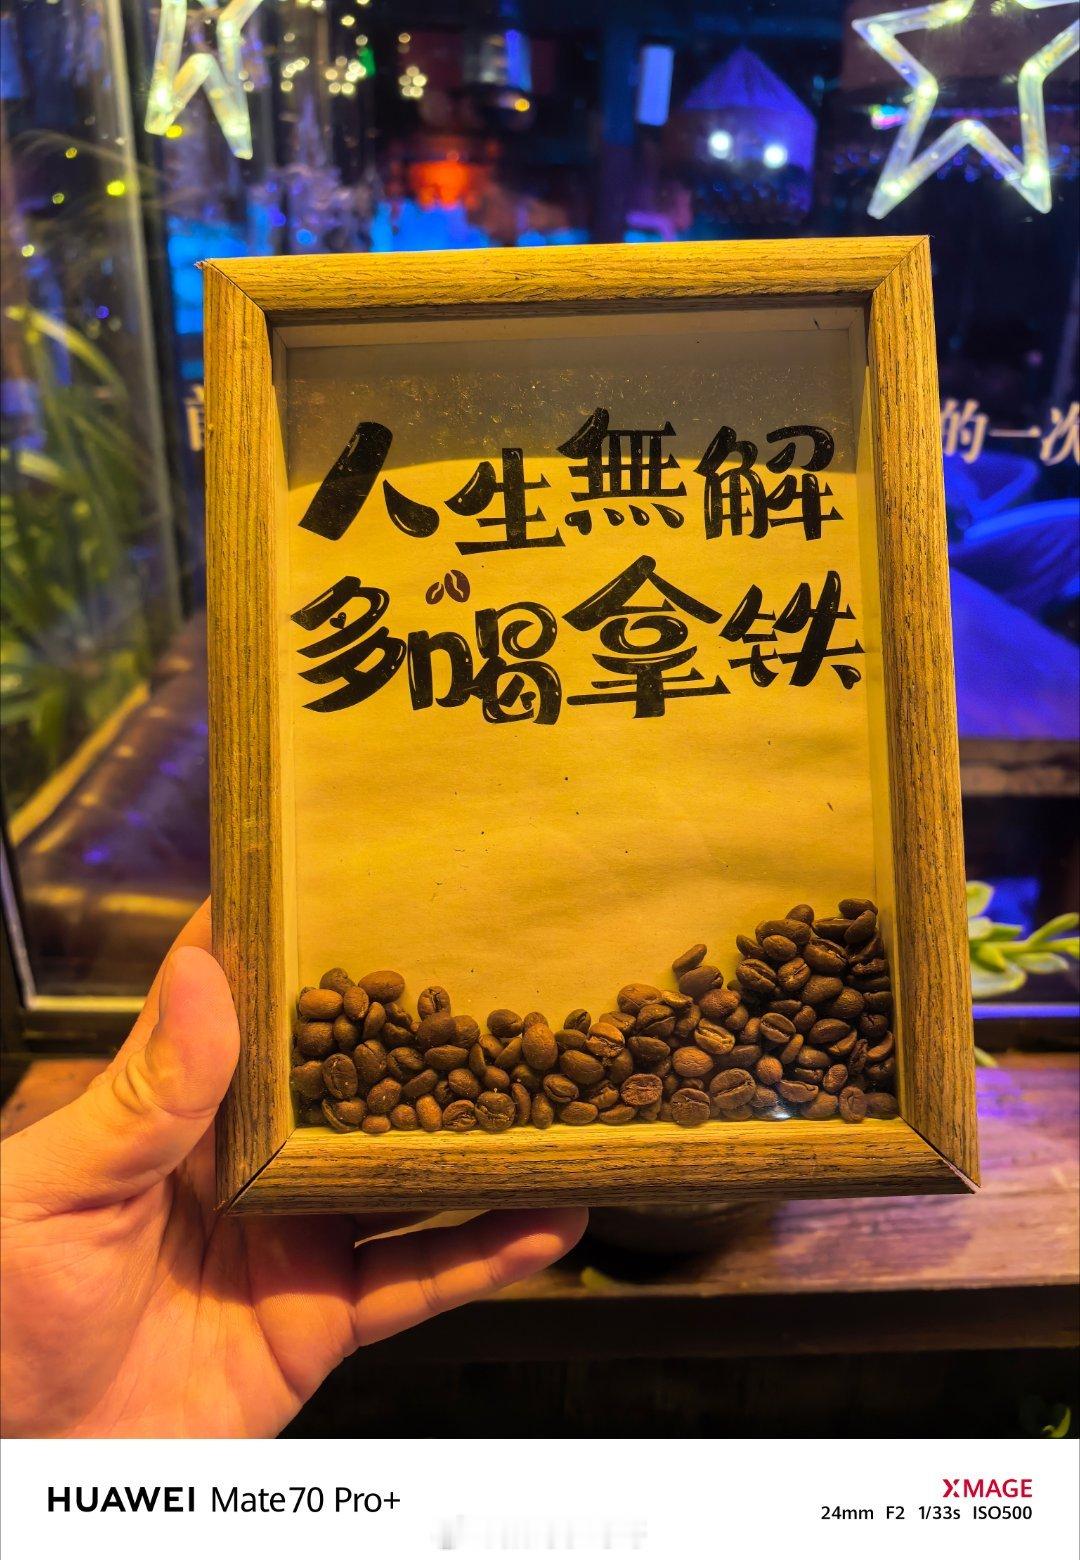 人生無解
多喝拿铁
的一次
HUAWEI Mate70 Pro+
XMAGE
24mm F2 1/33s ISO500